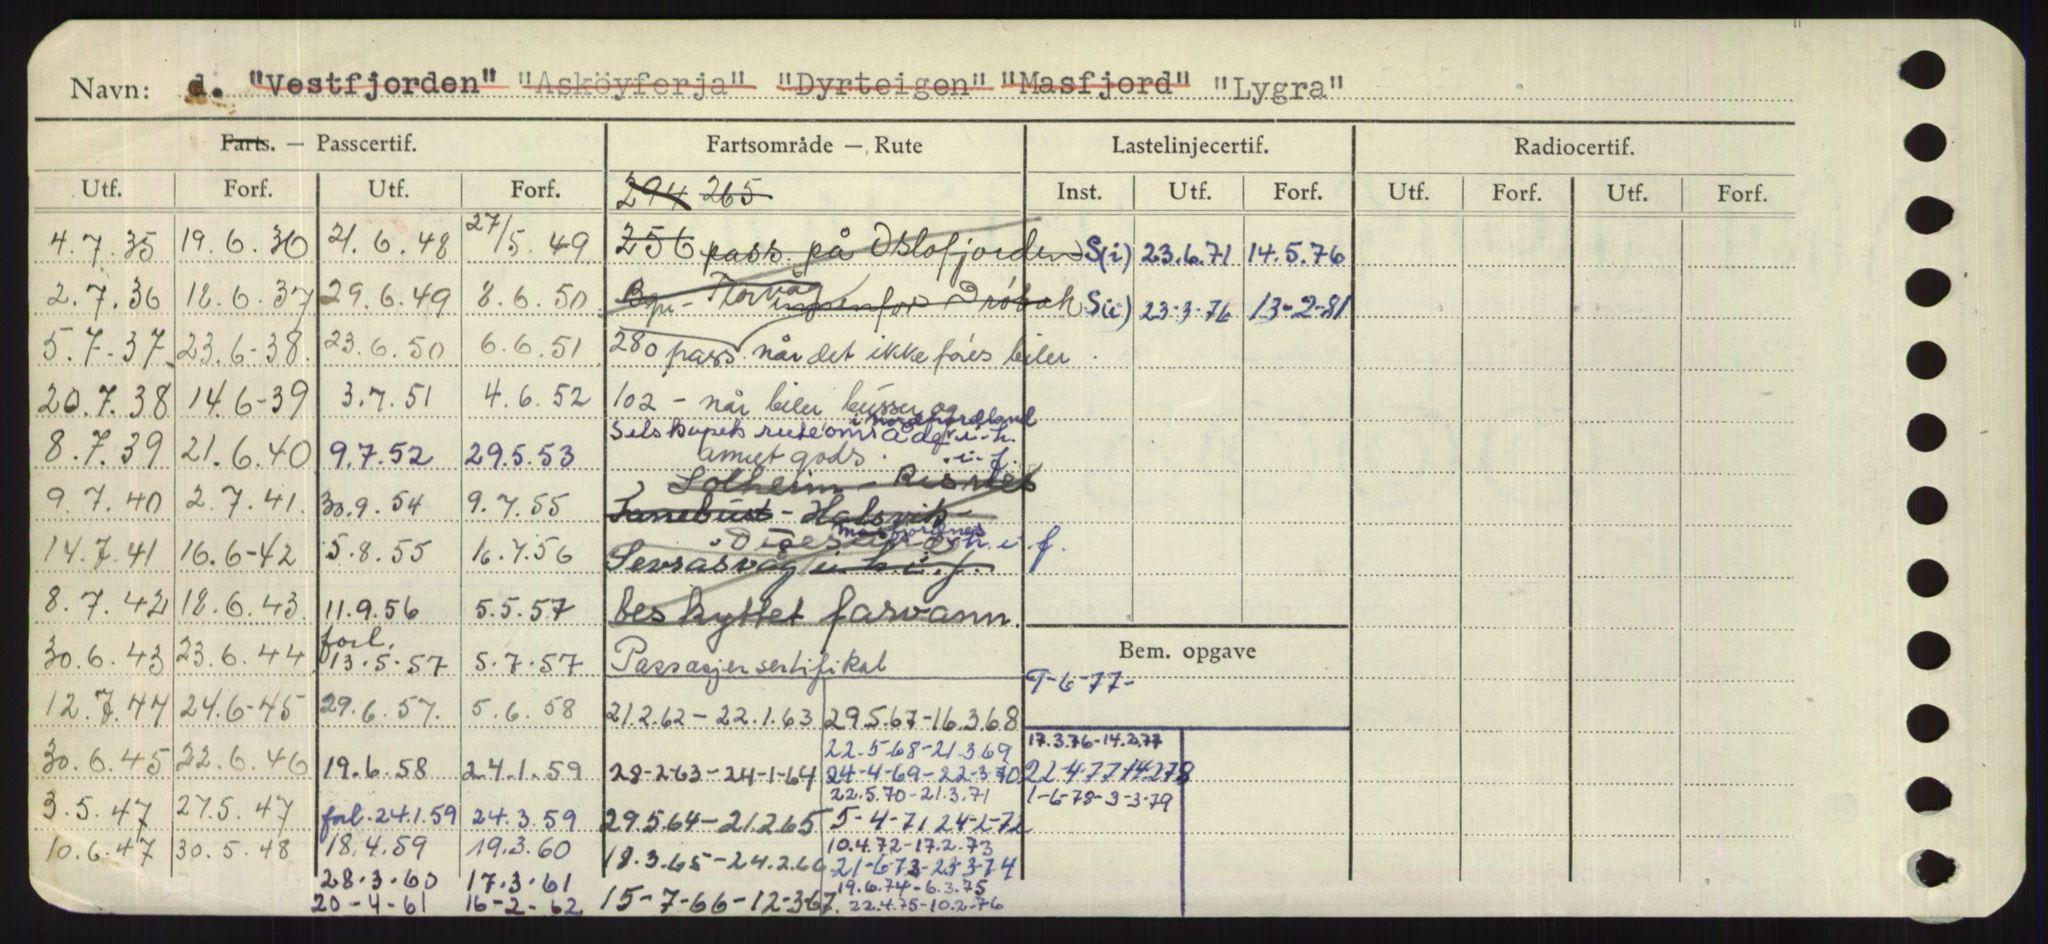 Navn: d. "Vestfjorden" "Asköyferja" "Dyrteigen" "Masfjord" "Lygra"
Farts. — Passcertif. Fartsområde — Rute Lastelinjecertif. Radiocertif.
Utf. Forf. Utf. Forf. 294 265 Inst. Utf. Forf. Utf. Forf. Utf. Forf.
4.7.35 19.6.36 21.6.48 27/5.49 256 pass på Oslofjorden S(i) 23.6.71 14.5.76
2.7.36 18.6.37 29.6.49 8.6.50 Bgn - Florvåg innenfor Drøbak S(i) 23-3-76 13-2-81
5.7-37 23.6-38 23.6.50 6.6.51 280 pass. når det ikke føres biler.
20.7.38 14.6-39 3.7.51 4.6.52 102 - når biler busser og
i Nordhordland
Selskapets ruteområde i h.
8.7.39 21.6.40 9.7.52 29.5.53 annet gods. i f.
Solheim - Risnes
9.7.40 2.7.41 30.9.54 9.7.55 Tanebust - Halsvik
Masfjordnes
14.7.41 16.6-42 5.8.55 16.7.56 Sevråsvåg i h. i. f. h. i f.
8.7.42 18.6.43 11.9.56 5.5.57 beskyttet farvann.
30.6.43 23.6.44 forl. 13.5.57 5.7.57 Passasjersertifikat Bem. opgave
9-6-77-
12.7.44 24.6-45 29.6.57. 5.6.58 21.2.62 - 22.1.63 29.5.67-16.3.68
22.5.68-21.3.69 17.3.76-14.2.77
30.6.45 22.6.46 19.6.58 24.1.59 28-2-63-24-1-64 24-4-69-22-3-70 22.4.77-14.2.78
22.5.70-21.3.71 1-6-78-3-3-79
3.5.47 27.5.47 forl. 24.1.59 24.3.59 29.5.64-21.2.65 5-4-71 24-2-72
10.6.47 30.5.48 18.4.59 19.3.60 10.4.72-17.2.73
18.3.65-24.2.66 21-6-73-23-3-74
28.3.60 17.3.61 19.6.74-6.3.75
20-4-61 16-2-62 15-7-66-12-3-67. 22.4.75-10.2.76